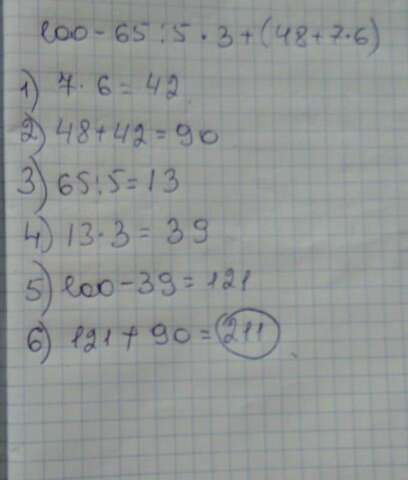 200 - 65 : 5 · 3 + (48 + 7 · 6)
1) 7 · 6 = 42
2) 48 + 42 = 90
3) 65 : 5 = 13
4) 13 · 3 = 39
5) 200 - 39 = 121
6) 121 + 90 = 211